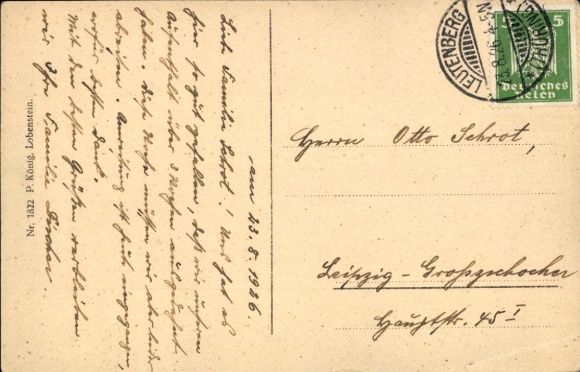 am 23.8.1926.
Liebe Familie Schrot! Uns hat es
hier so gut gefallen, daß wir unsern
Aufenthalt über 3 Wochen ausgedehnt
haben. Diese Woche müssen wir aber leider
abreisen. Anweisung ist heute eingegangen,
wofür besten Dank.
Mit den besten Grüßen verbleiben
wir Ihre Familie
Nr. 1822 P. König, Lobenstein.
LEUTENBERG
(THÜRING.)
5
Deutsches
Reich
Herrn Otto Schrot,
Leipzig-Großzschocher
Hauptstr. 45 I